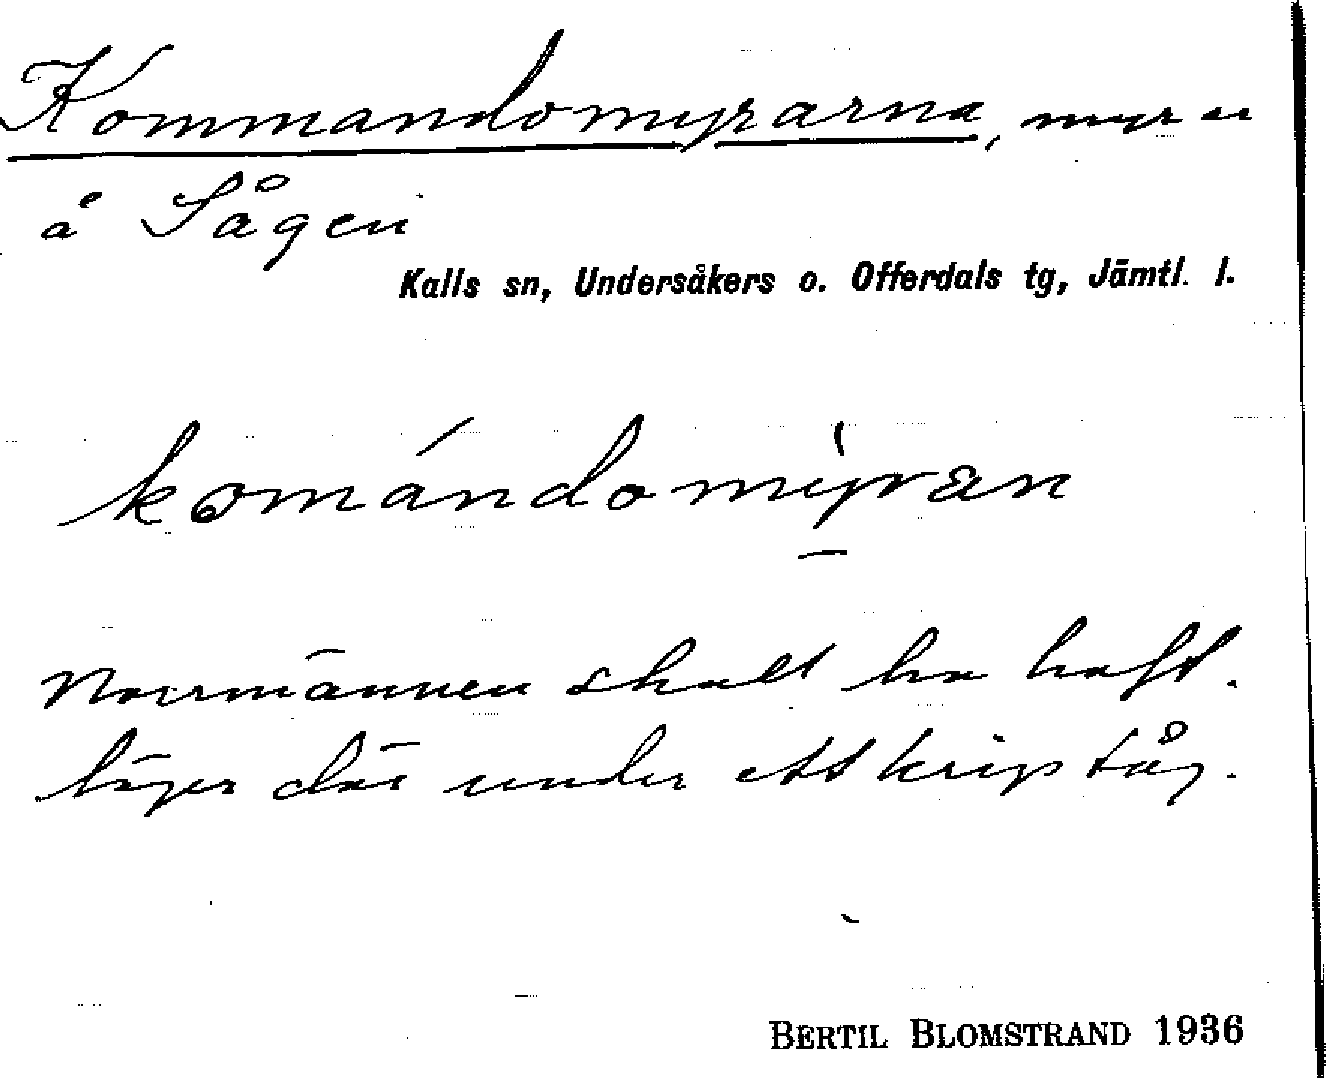 Kommandomyrarna, myrar
å Sågen
Kalls sn, Undersåkers o. Offerdals tg, Jämtl. l.
komándomyran
Norrmännen skall ha haft
läger där under ett krigståg.
BERTIL BLOMSTRAND 1936